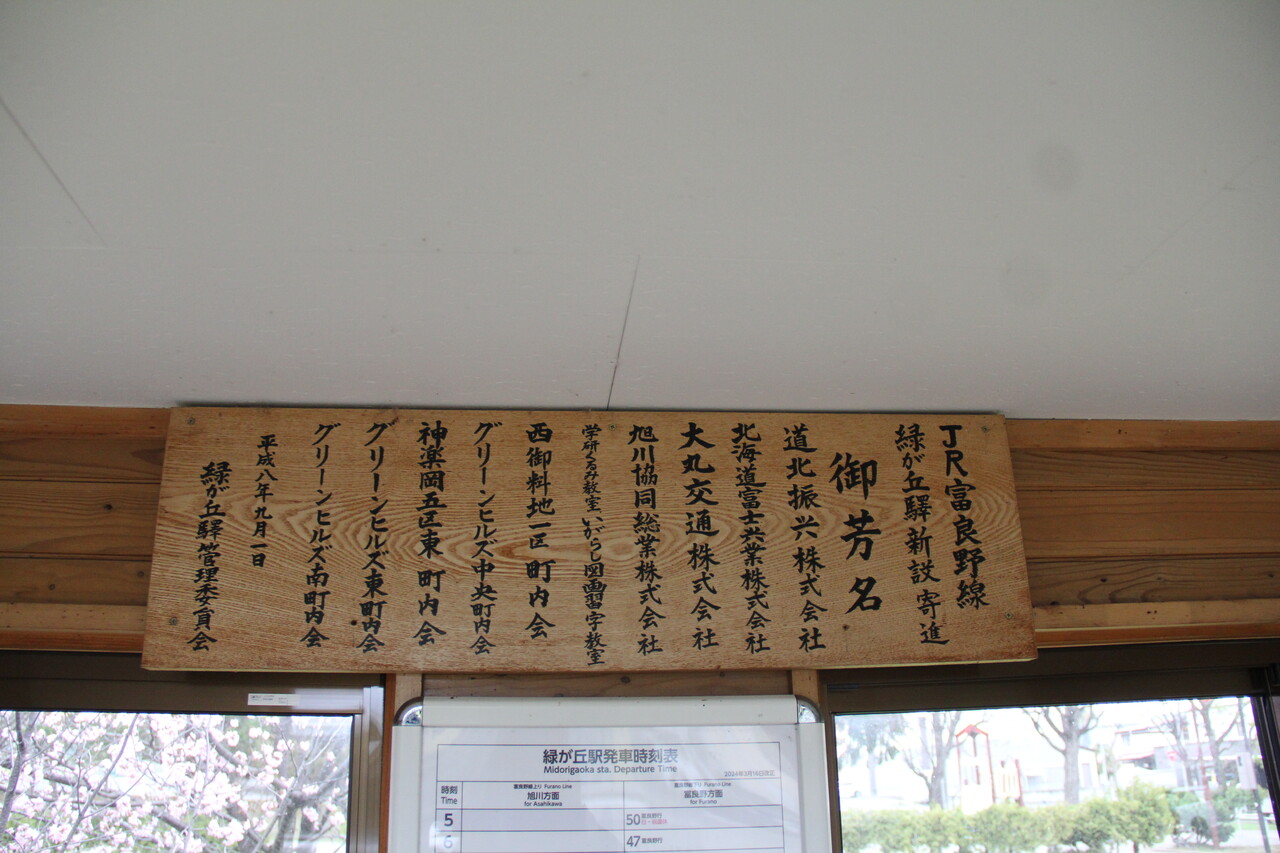 JR富良野線
緑が丘驛新設寄進
御芳名
道北振興株式会社
北海道富士興業株式会社
大丸交通株式会社
旭川協同総業株式会社
学研くるみ教室、いがらし図画習字教室
西御料地一区町内会
グリーンヒルズ中央町内会
神楽岡五区東町内会
グリーンヒルズ東町内会
グリーンヒルズ南町内会
平成八年九月一日
緑が丘驛管理委員会
緑が丘駅発車時刻表
Midorigaoka sta. Departure Time
2024年3月16日改正
時刻
Time
富良野線上り Furano Line
旭川方面
for Asahikawa
富良野線下り Furano Line
富良野方面
for Furano
5
50 富良野行
6
47 富良野行